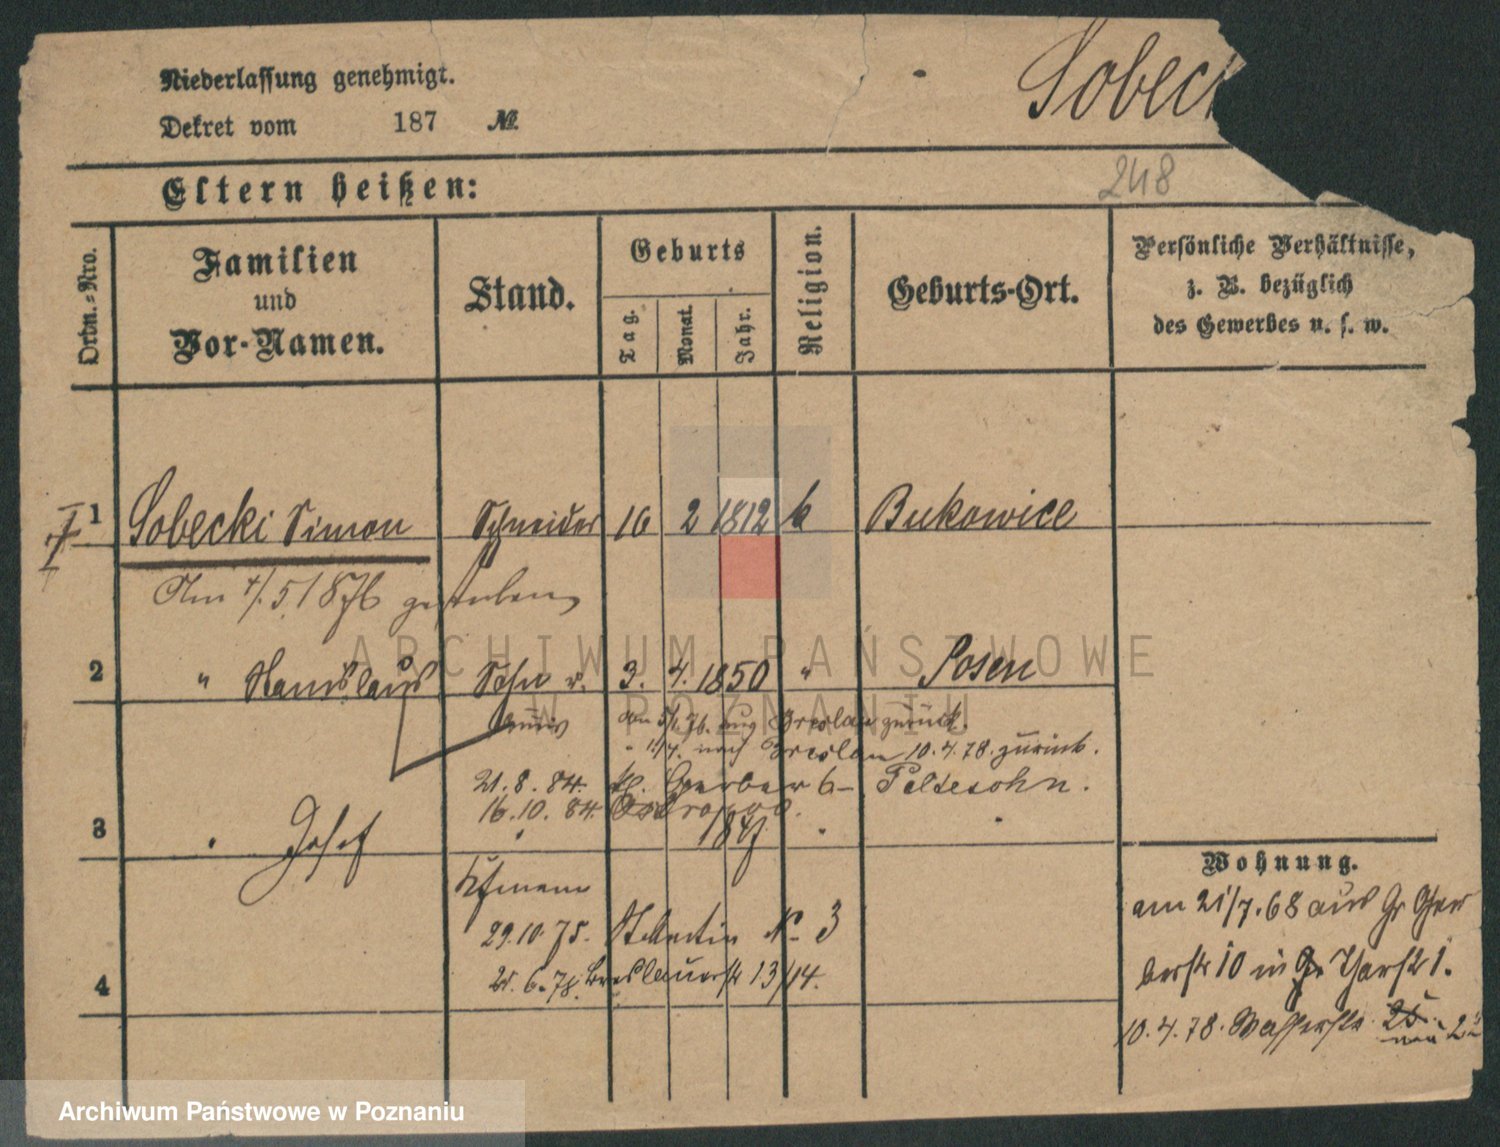 Niederlassung genehmigt.
Dekret vom 187 №
Sobeck
248
Eltern heißen:
Ordn.-Nro.
Familien
und
Vor-Namen.
Stand.
Geburts
Tag.
Monat.
Jahr.
Religion.
Geburts-Ort.
Persönliche Verhältnisse,
z. B. bezüglich
des Gewerbes u. s. w.
1 Sobecki Simon Schneider 16 2 1812 k Bukowice
Am 4/5 1876 gestorben
2 " Stanislaus Sohn v. 3. 4. 1850 " Posen
Am aus Breslau zurück.
" nach Breslau 10.4.78. zurück.
21.8.84. kl. Gerber 6 - Peltesohn.
16.10.84.
3 " Josef " 184 " "
Kfmann
29.10.75. St Martin N. 3
6.78. Breslauerstr 13/14.
4
Wohnung.
am 21/7.68 aus Gr Ger
berstr 10 in Gr 1.
10.4.78. Wasserstr. 25.
ARCHIWUM PAŃSTWOWE
W POZNANIU
Archiwum Państwowe w Poznaniu